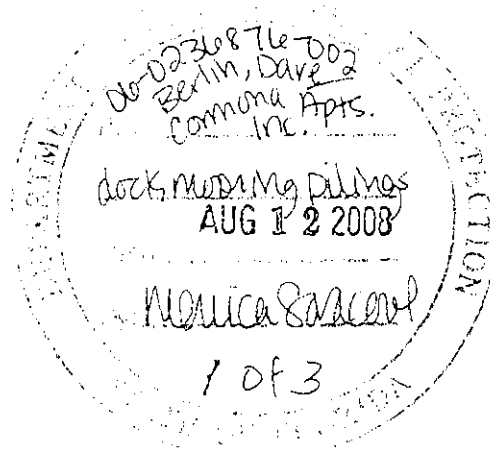 06-0236876-002
Berlin, Dave
Commona Apts.
Inc.
dock, mooring pilings
AUG 12 2008
Monica
1 OF 3